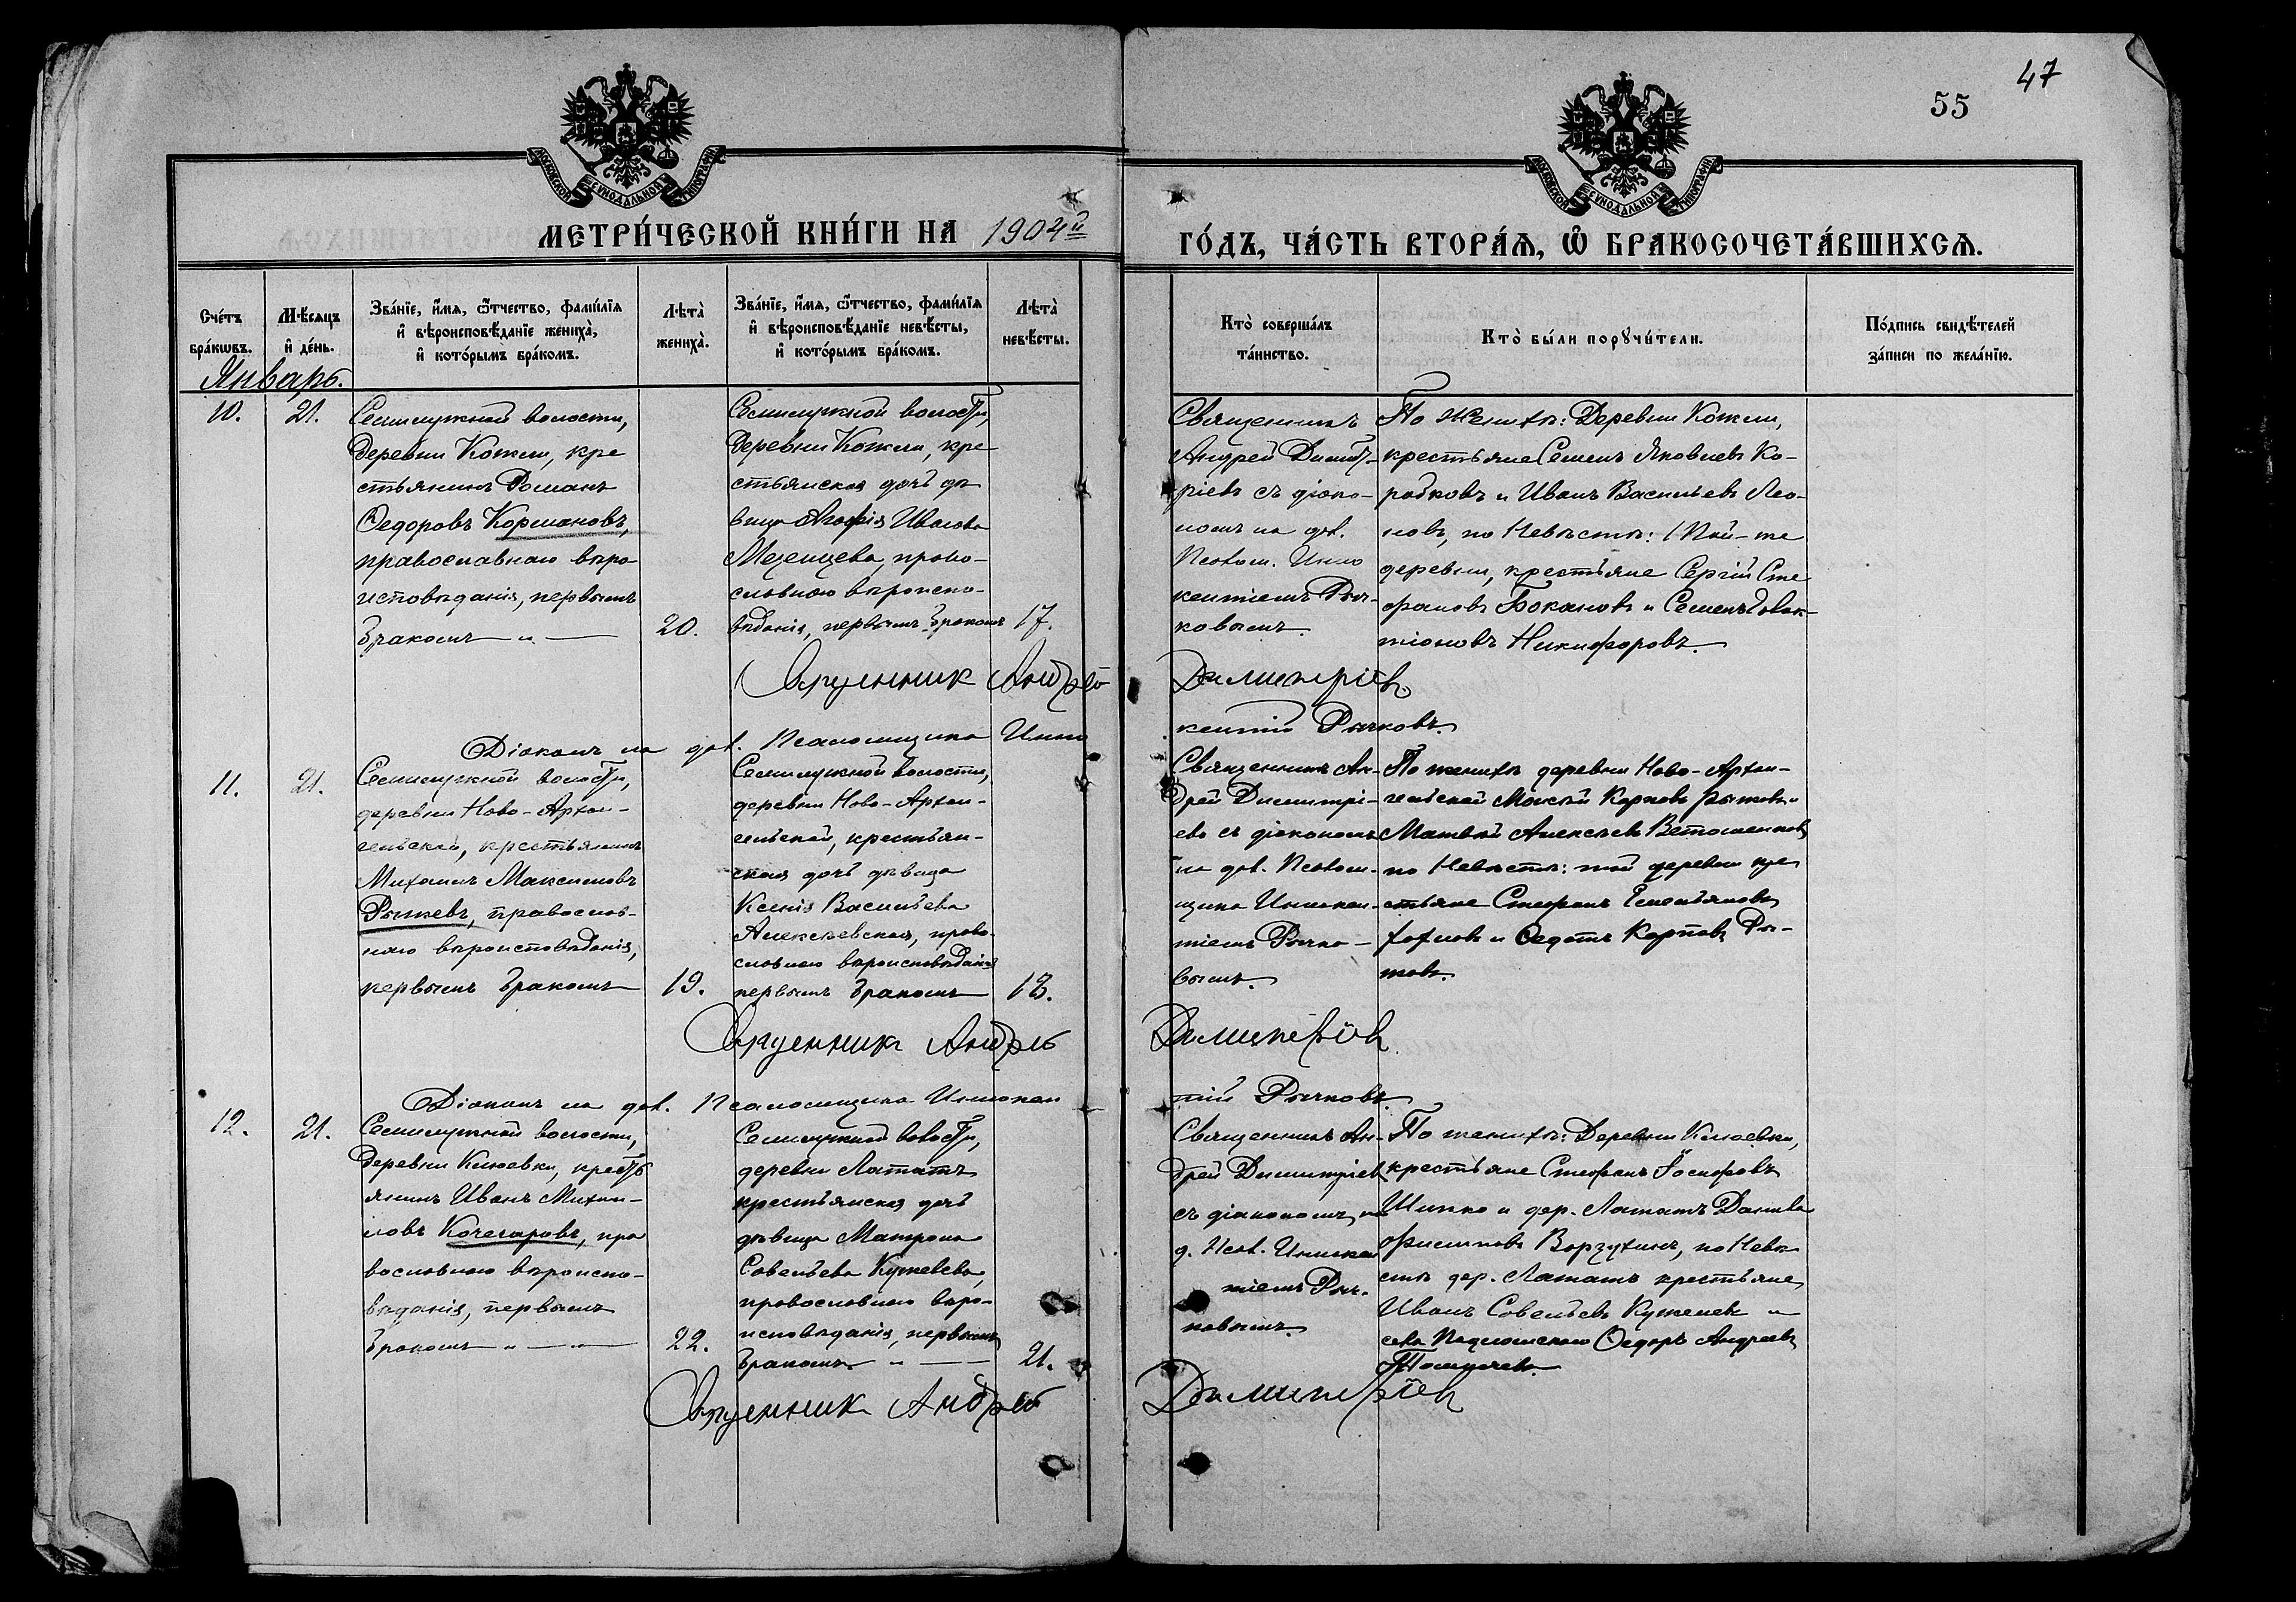 47
55
МОСКОВСКОЙ СѴНОДАЛЬНОЙ ТИПОГРАФІИ
МОСКОВСКОЙ СѴНОДАЛЬНОЙ ТИПОГРАФІИ
МЕТРИ́ЧЕСКОЙ КНИ́ГИ НА 1904й
ГО́ДЪ, ЧА́СТЬ ВТОРА́Ѧ, Ѽ БРАКОСОЧЕТА́ВШИХСѦ.
Сче́тъ
бра́кѡвъ.
Мѣ́сяцъ
и҆ де́нь.
Зва́нїе, и҆́мѧ, ѻ҆́тчество, фами́лїѧ
и҆ вѣроисповѣ́данїе жениха̀,
и҆ кото́рымъ бра́комъ.
Лѣта̀
жениха̀.
Зва́нїе, и҆́мѧ, ѻ҆́тчество, фами́лїѧ
и҆ вѣроисповѣ́данїе невѣ́сты,
и҆ кото́рымъ бра́комъ.
Лѣта̀
невѣ́сты.
Кто̀ соверша́лъ
та́инство.
Кто̀ бы́ли порꙋчи́тели.
По́дпись свидѣ́телей
за́писи по жела́нїю.
Январь.
10.
21.
Семилужной волости,
деревни Кожли, кре
стьянинъ Романъ
Ѳедоровъ Кормановъ,
православнаго вѣро
исповѣданія, первымъ
бракомъ — " —
20.
Семилужной волости,
деревни Кожли, кре
стьянская дочь дѣ
вица Агафія Иванова
Мезенцева, право-
славнаго вѣроиспо-
вѣданія, первымъ бракомъ
17.
Священникъ
Андрей Димит-
ріевъ съ діако-
номъ на
Инно
кентіемъ Рыч-
ковымъ.
По женихѣ: Деревни Кожли,
крестьяне Семенъ Яковлевъ Ко-
робковъ и Иванъ Васильевъ Лео-
новъ, по невѣстѣ: той-же
деревни, крестьяне Сергій Сте
фановъ Бокановъ и Семенъ
тіоновъ Никифоровъ.
Священник Андрей
Димитріев
Діаконъ на Псаломщика Инно
кентій Рычковъ.
11.
21.
Семилужной волости,
деревни Ново-Архан-
гельской, крестьянинъ
Михаилъ Максимовъ
Рыжевъ, православ-
наго вѣроисповѣданія,
первымъ бракомъ —
19.
Семилужной волости,
деревни Ново-Архан-
гельской, крестьян-
ская дочь дѣвица
Ксенія Васильева
Алексѣевская, право-
славнаго вѣроисповѣданія
первымъ бракомъ —
18.
Священникъ Ан-
дрей Димитрі-
евъ съ діакономъ
на
щика Иннокен-
тіемъ Рычко-
вымъ.
По женихѣ деревни Ново-Архан-
гельской Моисѣй Карповъ Рыжовъ и
Матвѣй Алексѣевъ Ветошенковъ,
по невѣстѣ: той деревни кре
стьяне Стефанъ Емельяновъ
и Ѳедотъ Карповъ Ры-
жовъ.
Священник Андрей
Димитріев
Діаконъ на Псаломщика Иннокен
тій Рычковъ.
12.
21.
Семилужной волости,
деревни Клюевки, кресть
янинъ Иванъ Михаи-
ловъ Кочегаровъ, пра
вославнаго вѣроиспо-
вѣданія, первымъ
бракомъ — " —
22.
Семилужной волости,
деревни Лататъ
крестьянская дочь
дѣвица Матрона
Савельева Кужелева,
православнаго вѣро-
исповѣданія, первымъ
бракомъ — " —
21.
Священникъ Ан-
дрей Димитріевъ
съ діакономъ на
Иннокен
тіемъ Рыч-
ковымъ.
По женихѣ: Деревни Клюевки,
крестьяне Стефанъ Іосифовъ
Шипко и дер. Лататъ Данила
Ворзухинъ, по невѣ
стѣ дер. Лататъ крестьяне,
Иванъ Савельевъ Кужелев и
села Ѳедоръ Андреевъ
Священник Андрей
Димитріев